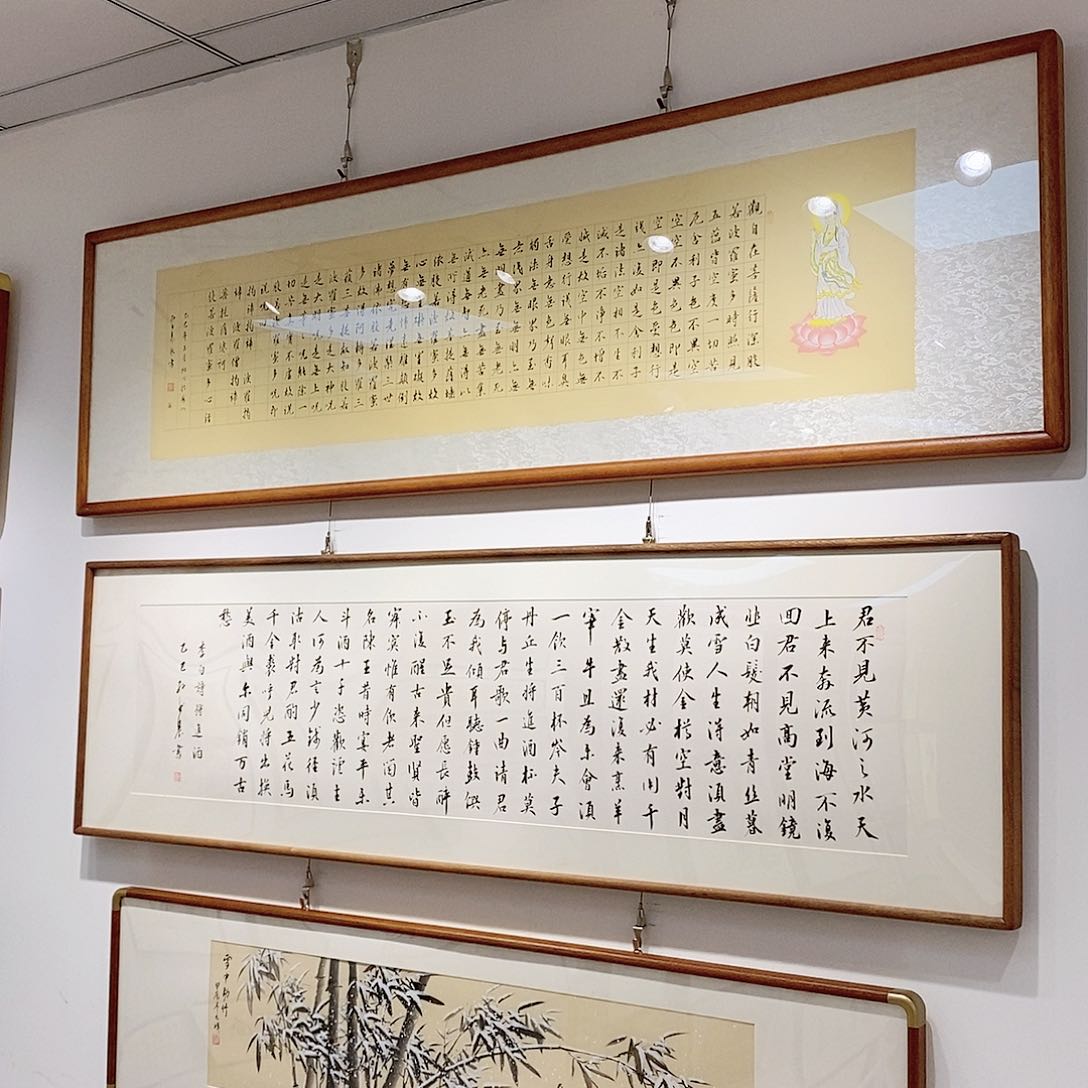 觀自在菩薩行深般
若波羅蜜多時照見
五蘊皆空度一切苦
厄舍利子色不異空
空不異色色即是
空空即是色受想行
識亦復如是舍利子
是諸法空相不生不
滅不垢不淨不增不
減是故空中無色無
受想行識無眼耳鼻
舌身意無色聲香味
觸法無眼界乃至無
意識界無無明亦無
無明盡乃至無老死
亦無老死盡無苦集
滅道無智亦無得以
無所得故菩提薩埵
依般若波羅蜜多故
心無罣礙無罣礙故
無有恐怖遠離顛倒
夢想究竟涅槃三世
諸佛依般若波羅蜜
多故得阿耨多羅三
藐三菩提故知般若
波羅蜜多是大神咒
是大明咒是無上咒
是無等等咒能除一
切苦真實不虛故說
般若波羅蜜多咒即
說咒曰
揭諦揭諦 波羅揭
諦 波羅僧揭諦
菩提薩婆訶
般若波羅蜜多心經
君不見黃河之水天
上來奔流到海不復
回君不見高堂明鏡
悲白髮朝如青丝暮
成雪人生得意須盡
歡莫使金樽空對月
天生我材必有用千
金散盡還復來烹羊
宰牛且為樂會須
一飲三百杯岑夫子
丹丘生將進酒杯莫
停与君歌一曲請君
為我傾耳聽鐘鼓饌
玉不足貴但愿長醉
不復醒古來聖賢皆
寂寞惟有飲者留其
名陳王昔時宴平樂
斗酒十千恣歡謔主
人何為言少錢徑須
沽取對君酌五花馬
千金裘呼兒將出換
美酒與尔同銷万古
愁
李白詩將進酒
乙巳
書
雪中翠竹